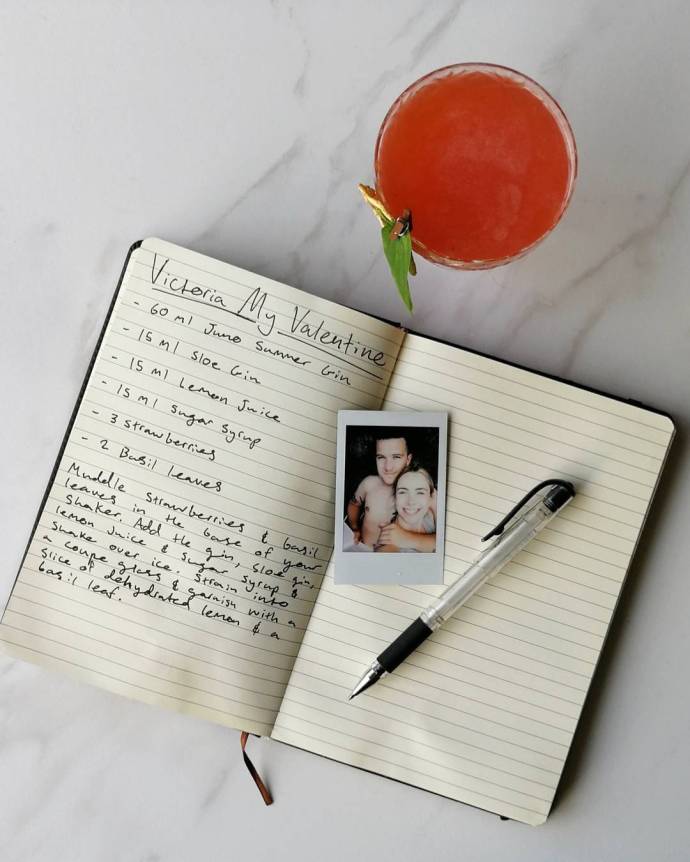 Victoria My Valentine
- 60 ml Juno Summer Gin
- 15 ml Sloe Gin
- 15 ml Lemon Juice
- 15 ml Sugar Syrup
- 3 Strawberries
- 2 Basil Leaves
Muddle strawberries & basil
leaves in the base of your
shaker. Add the gin, sloe gin,
lemon juice & sugar syrup &
shake over ice. Strain into
a coupe glass & garnish with a
slice of dehydrated lemon & a
basil leaf.